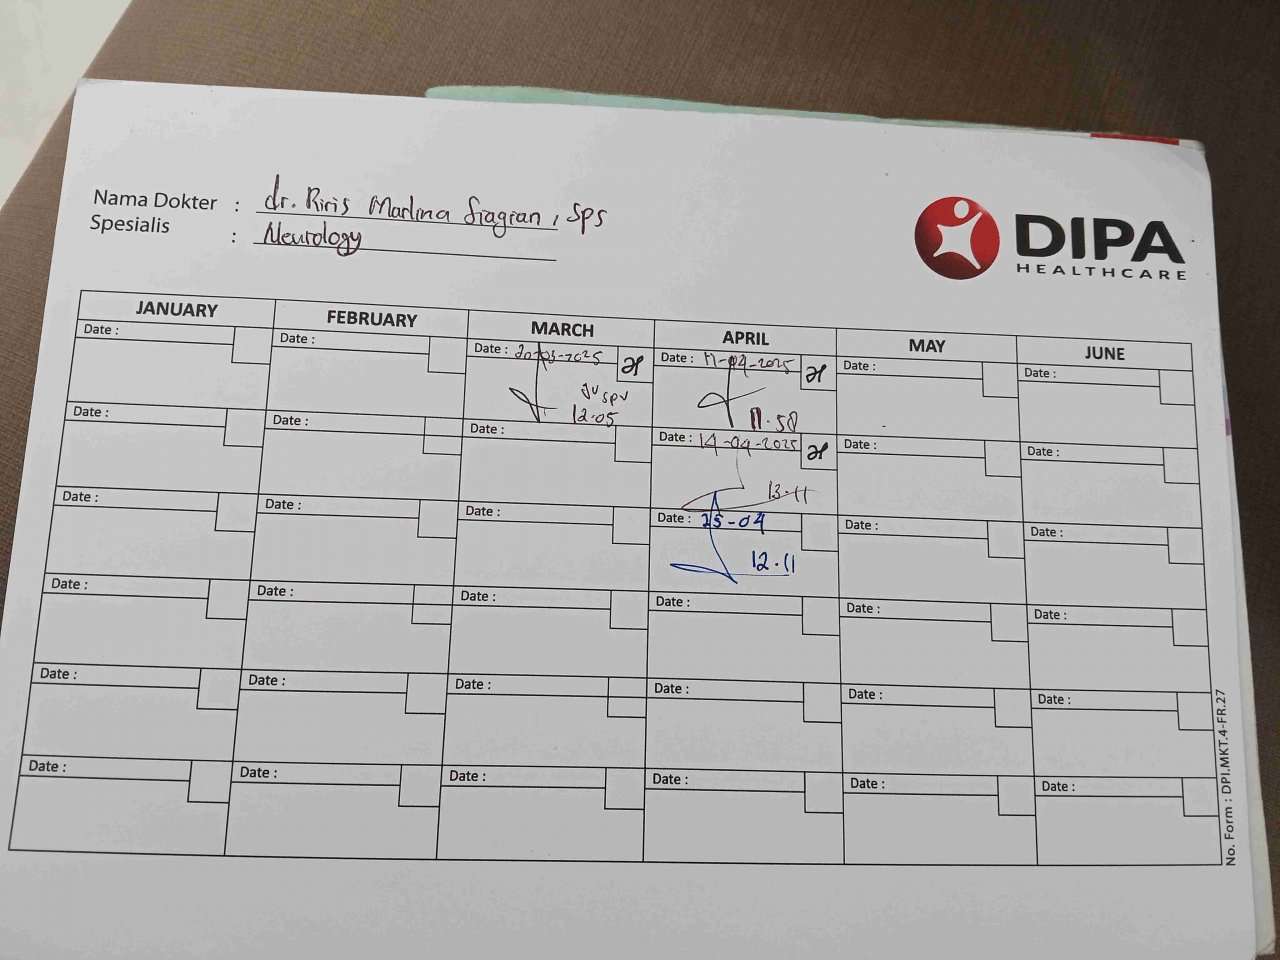 Nama Dokter : dr. Riris Marlina Siagian, SpS
Spesialis : Neurology
DIPA
HEALTHCARE
JANUARY FEBRUARY MARCH APRIL MAY JUNE
Date : Date : Date : 20-03-2025 Date : 11-04-2025 Date : Date :
JV SPV
12.05 11.58
Date : Date : Date : Date : 14-04-2025 Date : Date :
13.11
Date : Date : Date : Date : 25-04 Date : Date :
12.11
Date : Date : Date : Date : Date : Date :
Date : Date : Date : Date : Date : Date :
Date : Date : Date : Date : Date : Date :
No. Form : DPI.MKT.4-FR.27